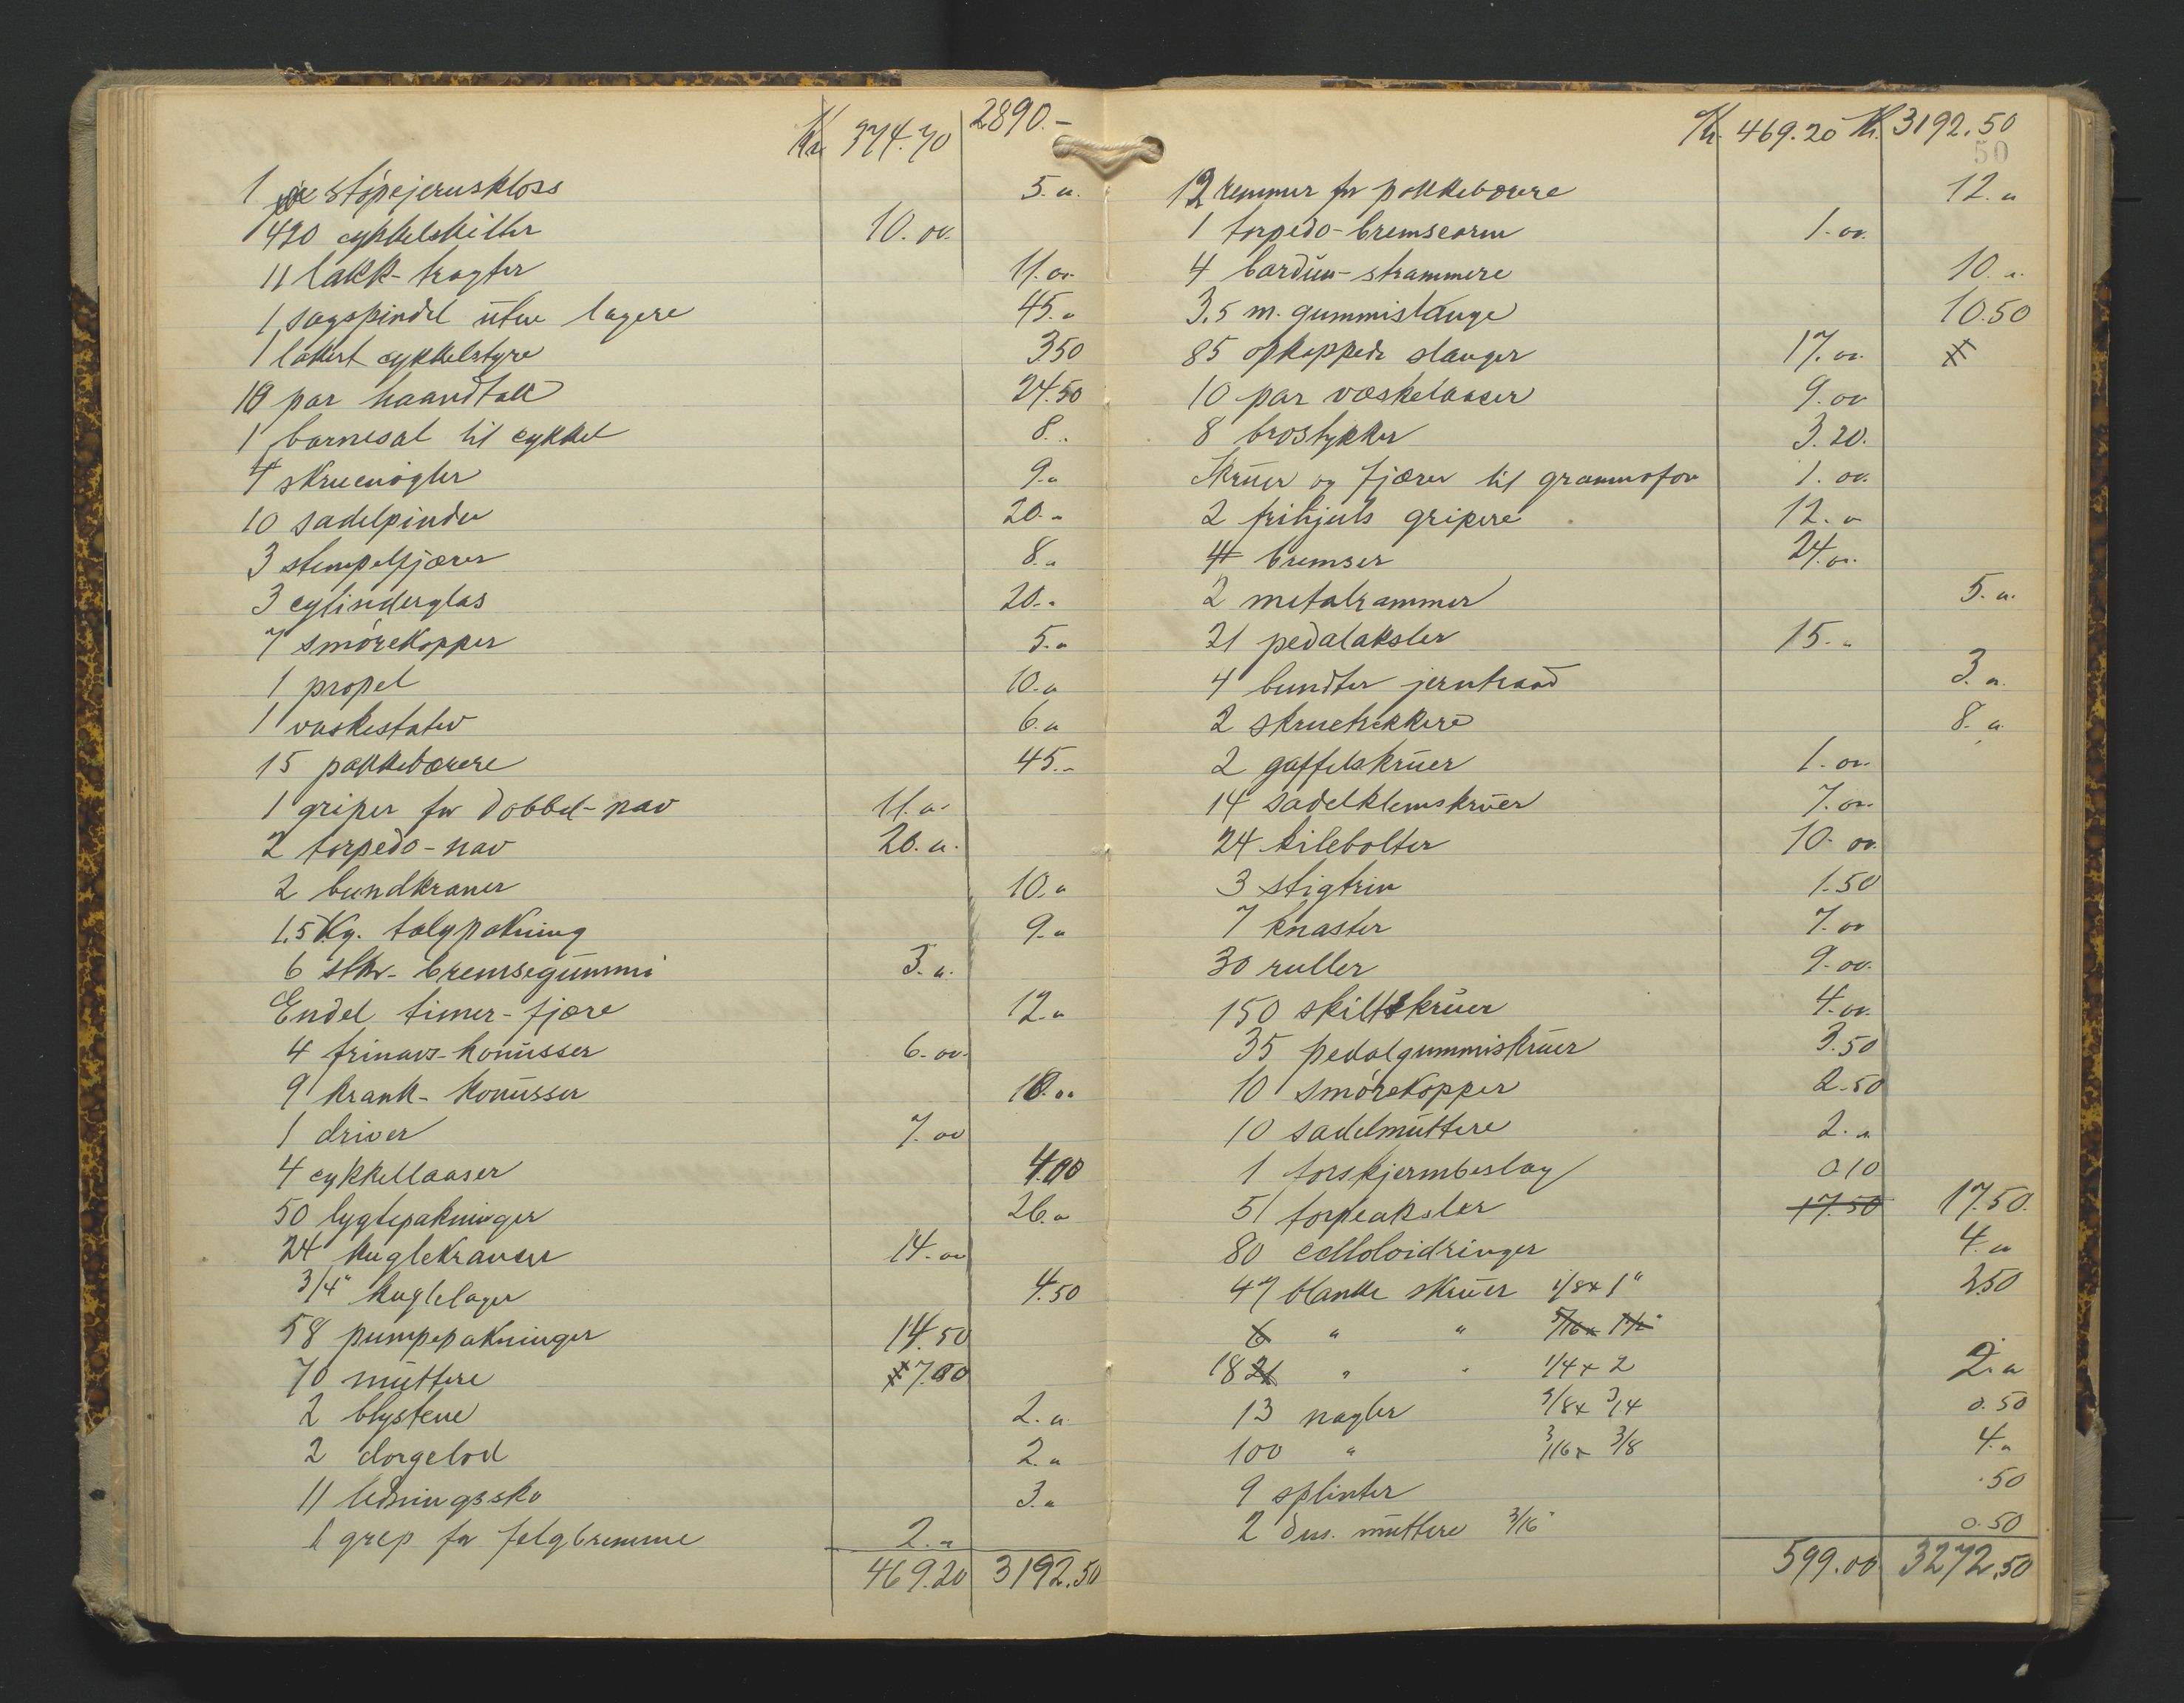 Kr. 374.70 2890.-
1 støpejernskloss 5.-
420 cykkelskilter 10.00
11 lakk-tragter 11.00
1 sagspindel uten lagere 45.-
1 lakert cykkelstyre 350
10 par haandtak 24.50
1 barnesal til cykkel 8.-
4 skruenøgler 9.-
10 sadelpinder 20.-
3 stempelfjærer 8.-
3 cylinderglas 20.-
7 smørekopper 5.-
1 propel 10.-
1 vaskestativ 6.-
15 pakkebærere 45.-
1 griper for dobbel-nav 11.-
2 torpedo-nav 20.-
2 bundkraner 10.-
1.5 Kg. talgpakning 9.-
6 stkr. bremsegummi 3.-
Endel timer-fjære 12.-
4 frinavs-konusser 6.00
9 krank-konusser 18.00
1 driver 7.00
4 cykkellaaser 4.00
50 lygtepakninger 26.-
24 kuglekranser 14.00
3/4" kuglelager 4.50
58 pumpepakninger 14.50
70 muttere 7.00
2 blystene 2.-
2 dorgelod 2.-
11 ledningssko 3.-
1 grep for felgbremme 2.-
469.20 3192.50
Kr. 469.20 Kr. 3192.50
50
12 remmer for pakkebærere 12.-
1 torpedo-bremsearm 1.00
4 bardun-strammere 10.-
3.5 m. gummislange 10.50
85 opkappede slanger 17.00
10 par væskelaaser 9.00
8 brostykker 3.20.
Skruer og fjærer til grammofon 1.00
2 frihjuls gripere 12.-
4 bremser 24.00
2 metalrammer 5.-
21 pedalaksler 15.-
4 bundter jerntraad 3.-
2 skruetrekkere 8.-
2 gaffelskruer 1.00
14 sadelklemskruer 7.00
24 kilebolter 10.00
3 stigtrin 1.50
7 knaster 7.00
30 ruller 9.00
150 skiltskruer 4.00
35 pedalgummiskruer 3.50
10 smørekopper 2.50
10 sadelmuttere 2.-
1 forskjermbeslag 0.10
51 torpeaksler 17.50 17.50.
80 celloloidringer 4.-
47 blanke skruer 1/8 x 1" 2.50
6 " " 5/16 x 1 1/2"
18 21 " " 1/4 x 2 2.-
13 nagler 3/8 x 3/4 0.50
100 " 3/16 x 3/8 4.-
9 splinter .50
2 dus. muttere 3/16" 0.50
599.00 3272.50